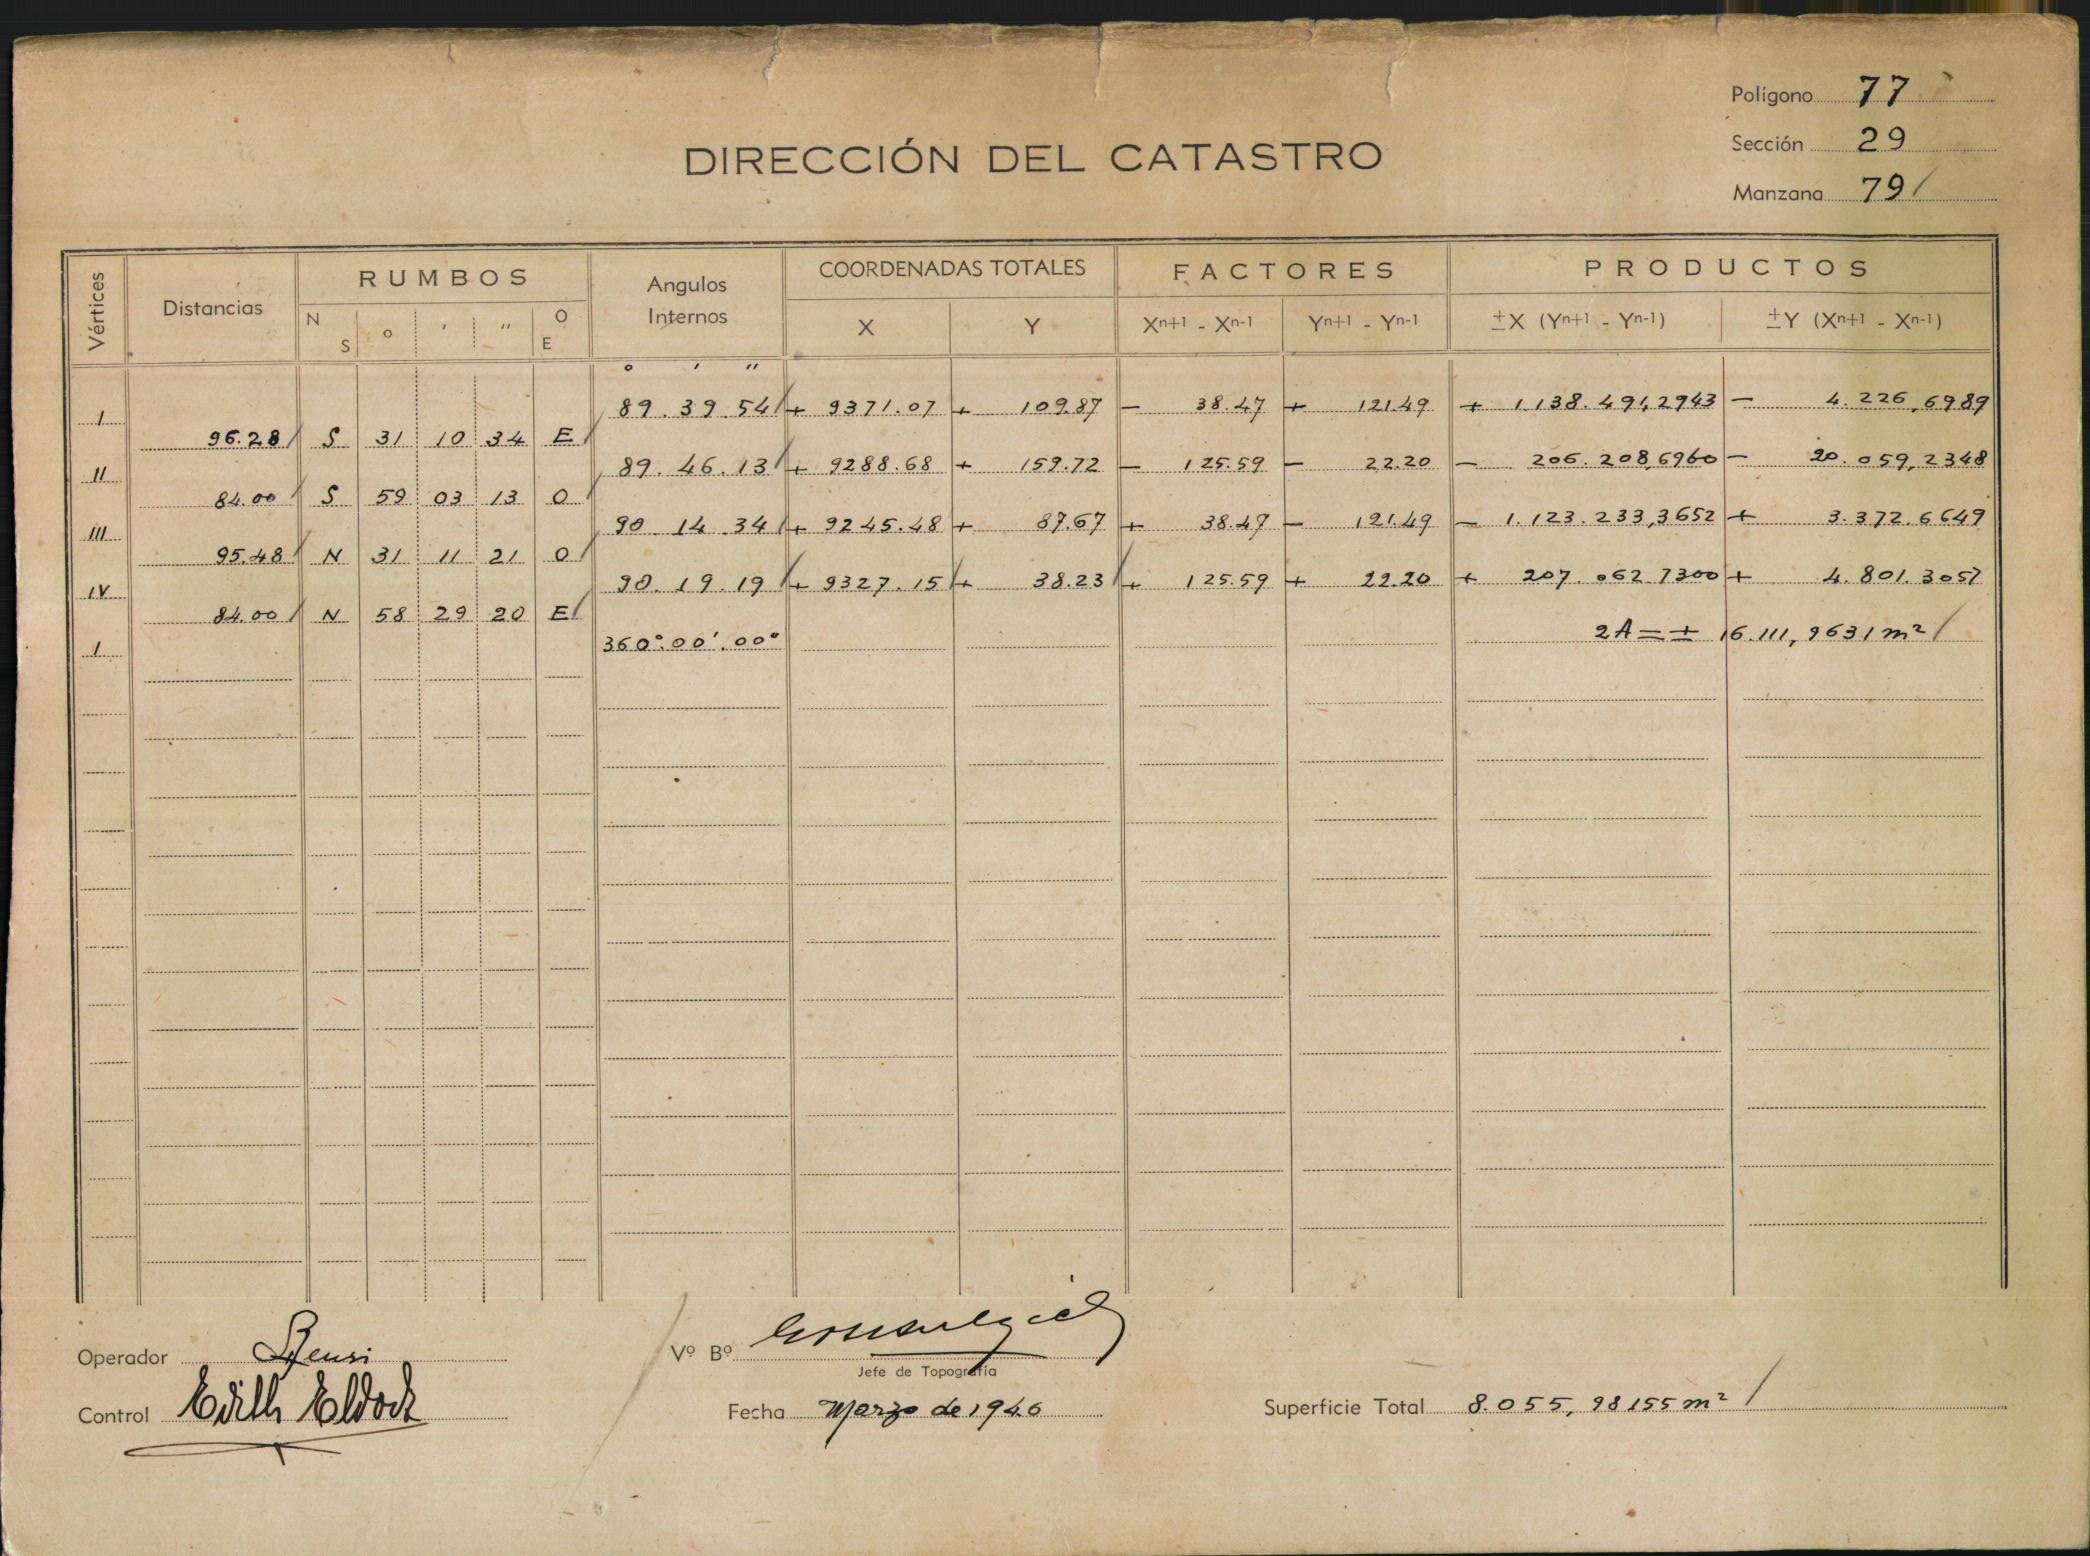 Polígono 77
Sección 29
Manzana 79/
DIRECCIÓN DEL CATASTRO
Vértices Distancias RUMBOS Angulos Internos COORDENADAS TOTALES FACTORES PRODUCTOS
N S ° ' " O E X Y Xn+1 - Xn-1 Yn+1 - Yn-1 ±X (Yn+1 - Yn-1) ±Y (Xn+1 - Xn-1)
° ' "
I 89.39.54/ + 9371.07 + 109.87 - 38.47 + 121.49 + 1.138.491,2943 - 4.226,6989
96.28/ S 31 10 34 E/
II 89.46.13/ + 9288.68 + 159.72 - 125.59 - 22.20 - 206.208,6960 - 20.059,2348
84.00/ S 59 03 13 O/
III 90 14 34/ + 9245.48 + 87.67 + 38.47 - 121.49 - 1.123.233,3652 + 3.372.6649
95.48/ N 31 11 21 O/
IV 90.19.19/ + 9327.15/ + 38.23/ + 125.59 + 22.20 + 207.062.7300 + 4.801.3057
84.00/ N 58 29 20 E/
I 360°.00'.00" 2A = ± 16.111,9631 m²/
Operador
Vº Bº
Jefe de Topografía
Control Edith
Fecha Marzo de 1946
Superficie Total 8.055,98155 m² /